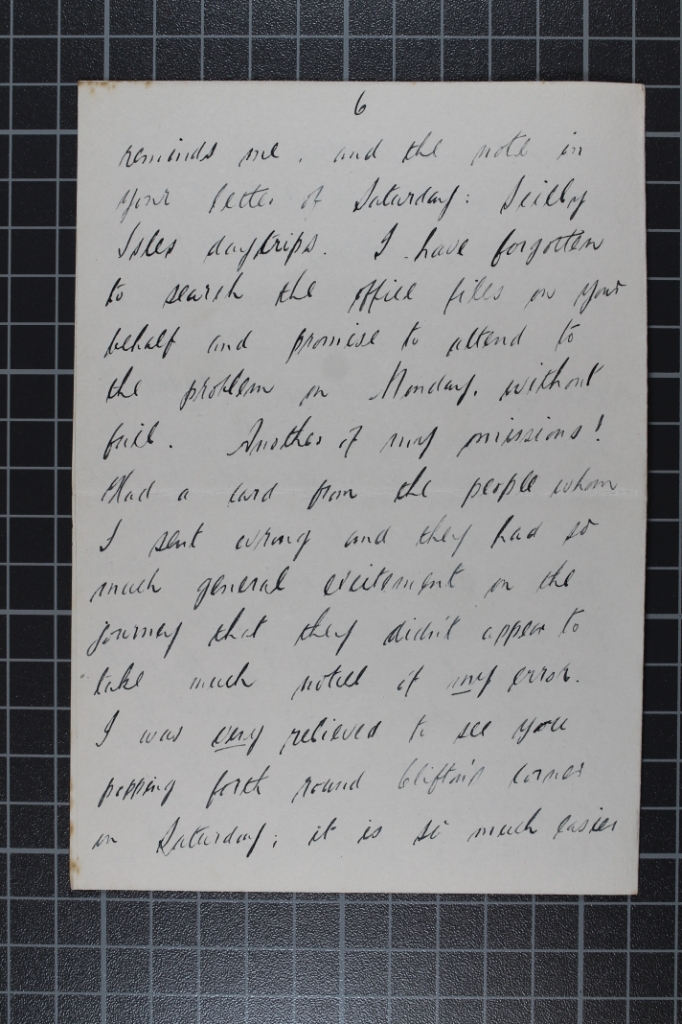 6
reminds me, and the note in
your letter of Saturday: Scilly
Isles daytrips. I have forgotten
to search the office files on your
behalf and promise to attend to
the problem on Monday, without
fail. Another of my missions!
Had a card from the people whom
I sent wrong and they had so
much general excitement on the
journey that they didn't appear to
take much notice of my error.
I was very relieved to see you
popping forth round Clifton's corner
on Saturday; it is so much easier